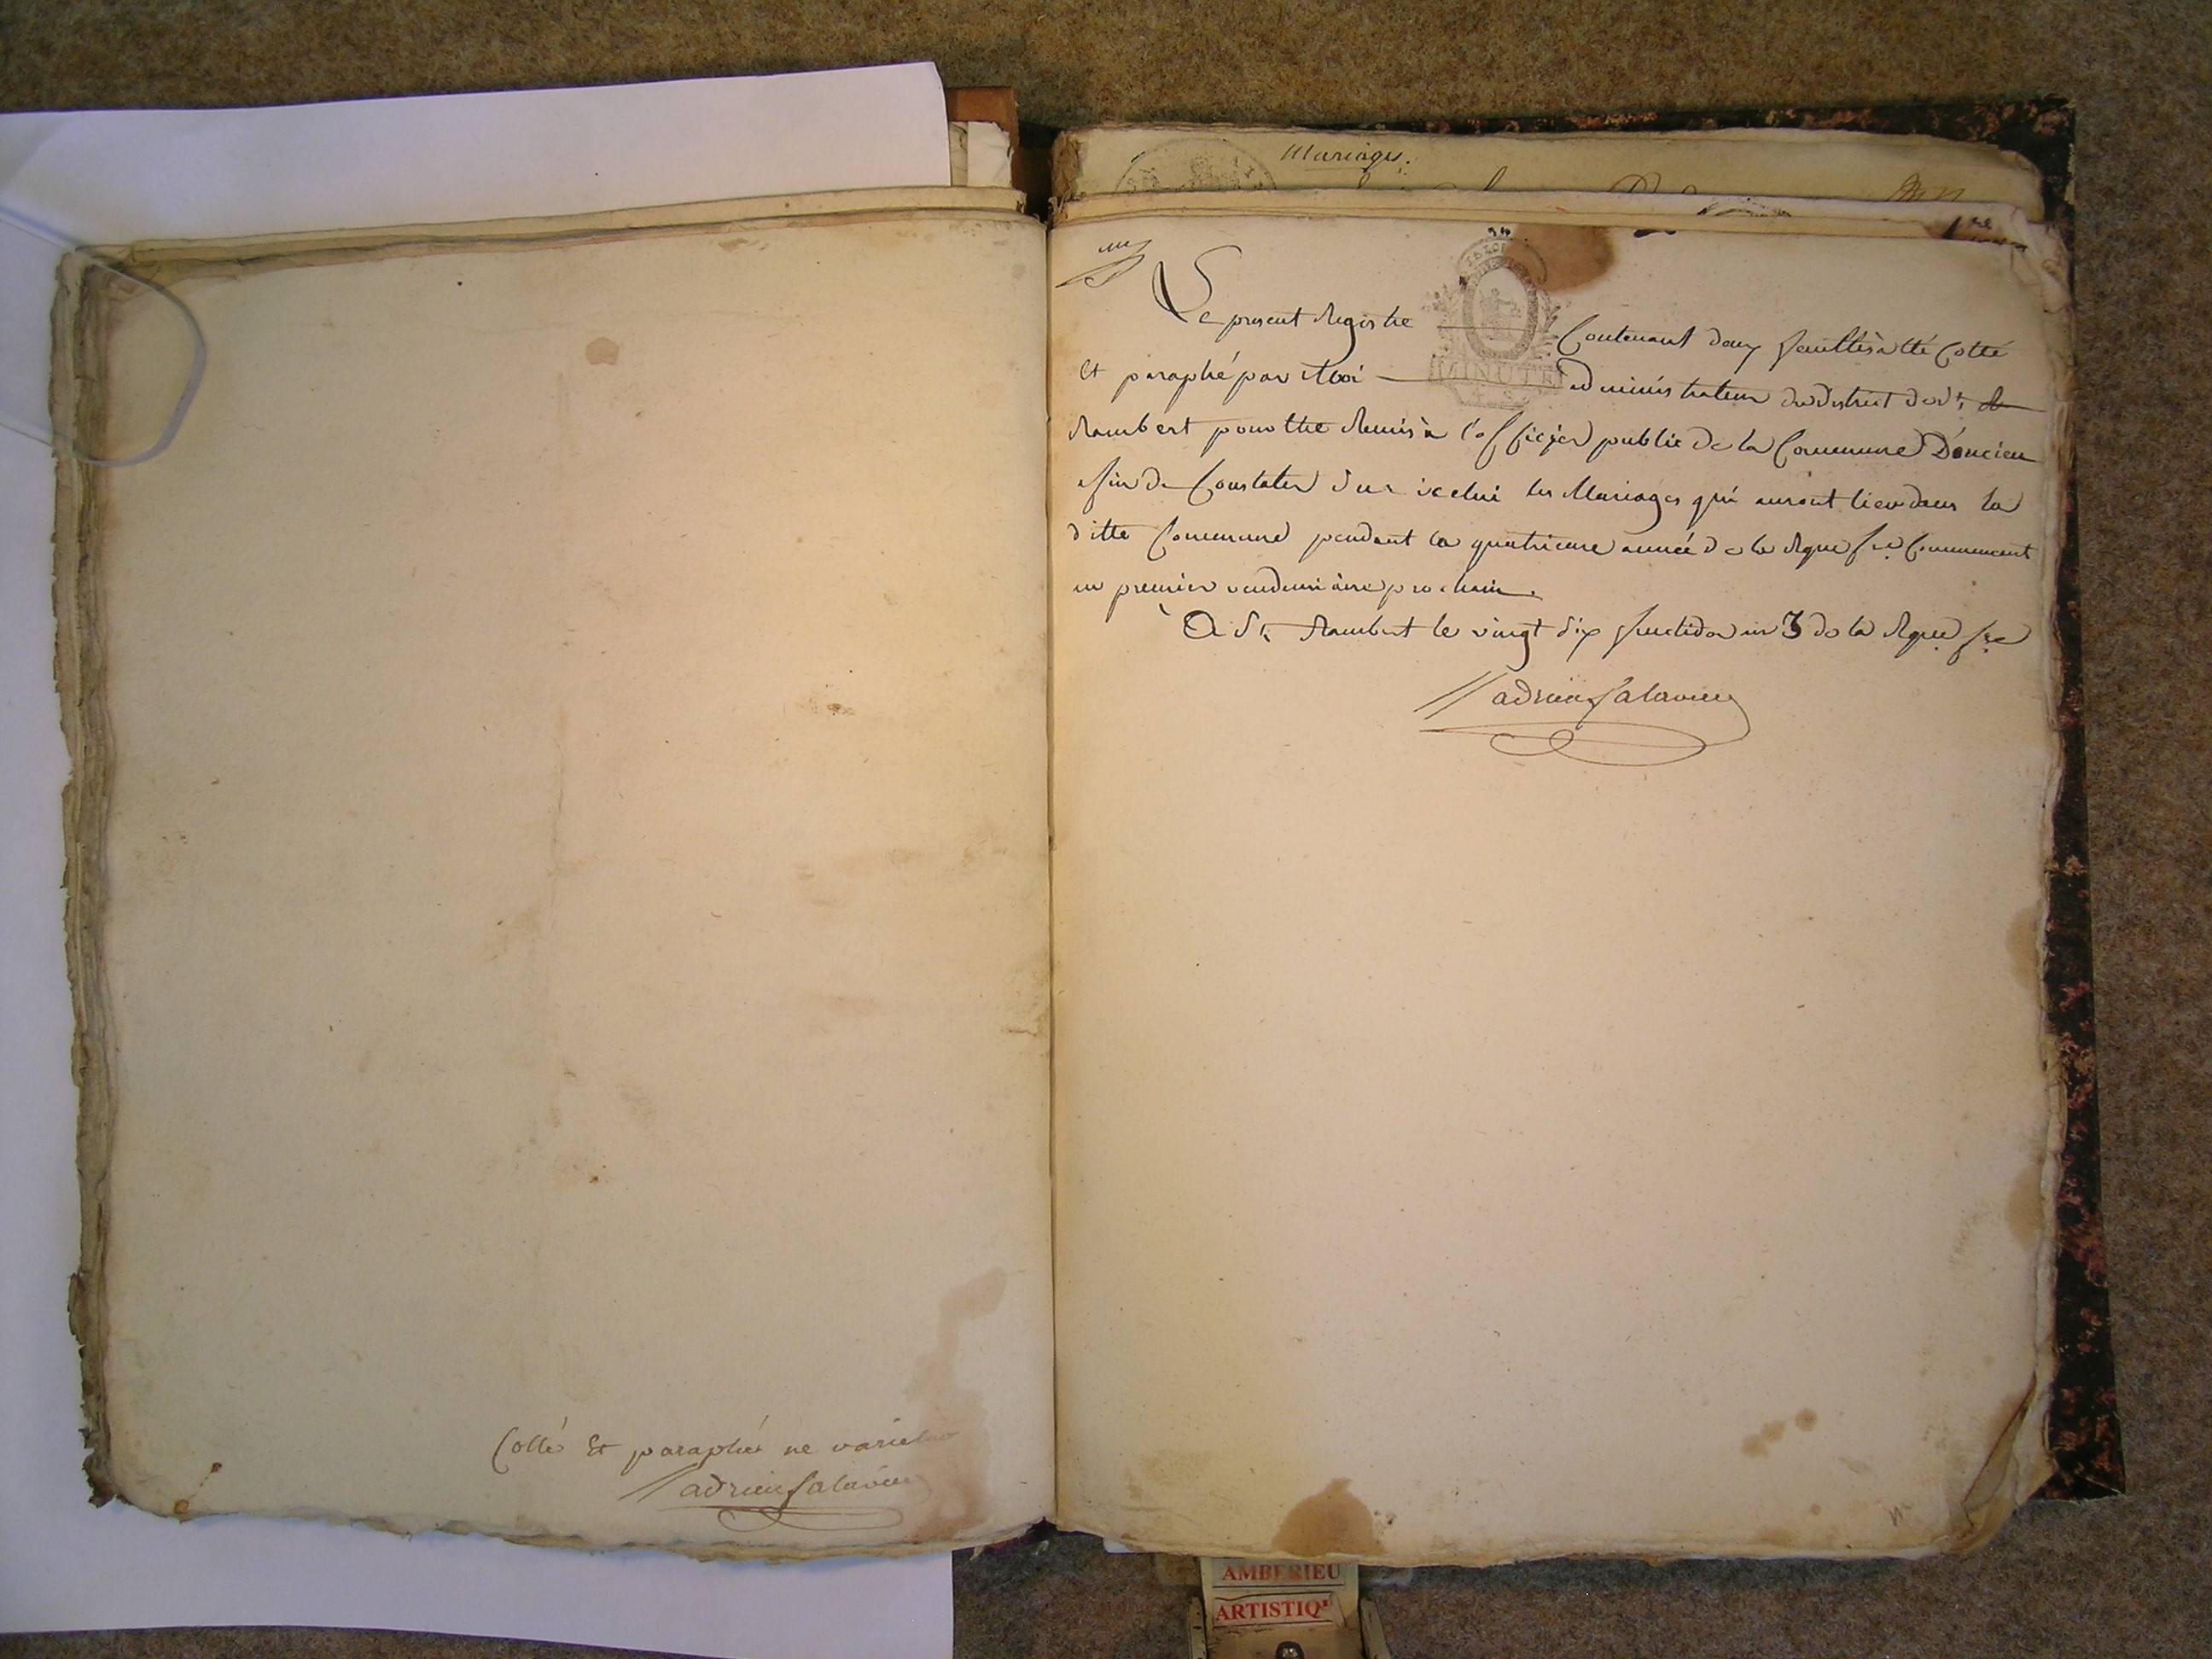 Cotté Et paraphé ne varietur
adrien Salavin
Mariages.
1re
Le present Registre Contenant deux feuilles a été Cotté
Et paraphé par Moi administrateur du district de St
Rambert pour être Remis à l'officier public de la Commune D'oncieu
afin de Constater Sur icelui les Mariages qui auront lieu dans la
ditte Commune pendant la quatrieme année de la Rque fse Commencent
au premier vendemiaire prochain.
A St Rambert le vingt Six fructidor an 3 de la Rque fse
adrien Salavin
MINUTE
AMBERIEU
ARTISTIQ